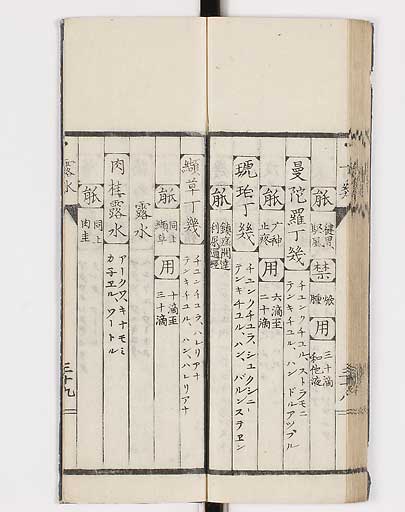 丁幾
能 健胃 駆風 禁 焮腫 用 三十滴 和他液
曼陀羅丁幾 チユンクチユル、ストラモニ テンキチユル、ハン、ドルアップル
能 止疼 用 六滴至 二十滴
琥珀丁幾 チユンクチユラ、シユクシニー テンキチユル、ハン、バルンステエン
能 鎮痙開達 利尿通経
纈草丁幾 チユンチユラ、ハレリアナ テンキチユル、ハン、ハレリアナ
能 同上 纈草 用 十滴至 三十滴
露水
肉桂露水 アークワ、キナモミ カネエル、ワートル
能 同上 肉圭
露水
三十九